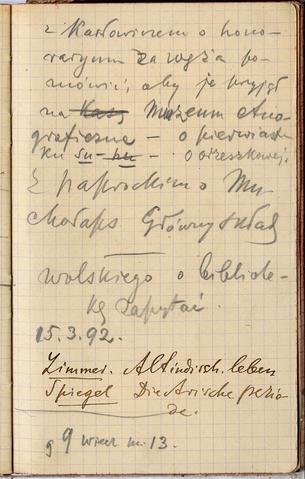 z Karłowiczem o hono-
rarjum za węża po-
mówić, aby je przyjął
na Kasę Muzeum etno-
graficzne – o pierwiast-
ku su- hu – o orzeszkowej.
Z paprockim o Mu-
chołaps Główny skład
wolskiego o bibliote-
kę zapytać.
15.3.92.
Zimmer. Altindisch. leben
Spiegel Die Arische perio-
de.
g 9 wiecz m. 13.